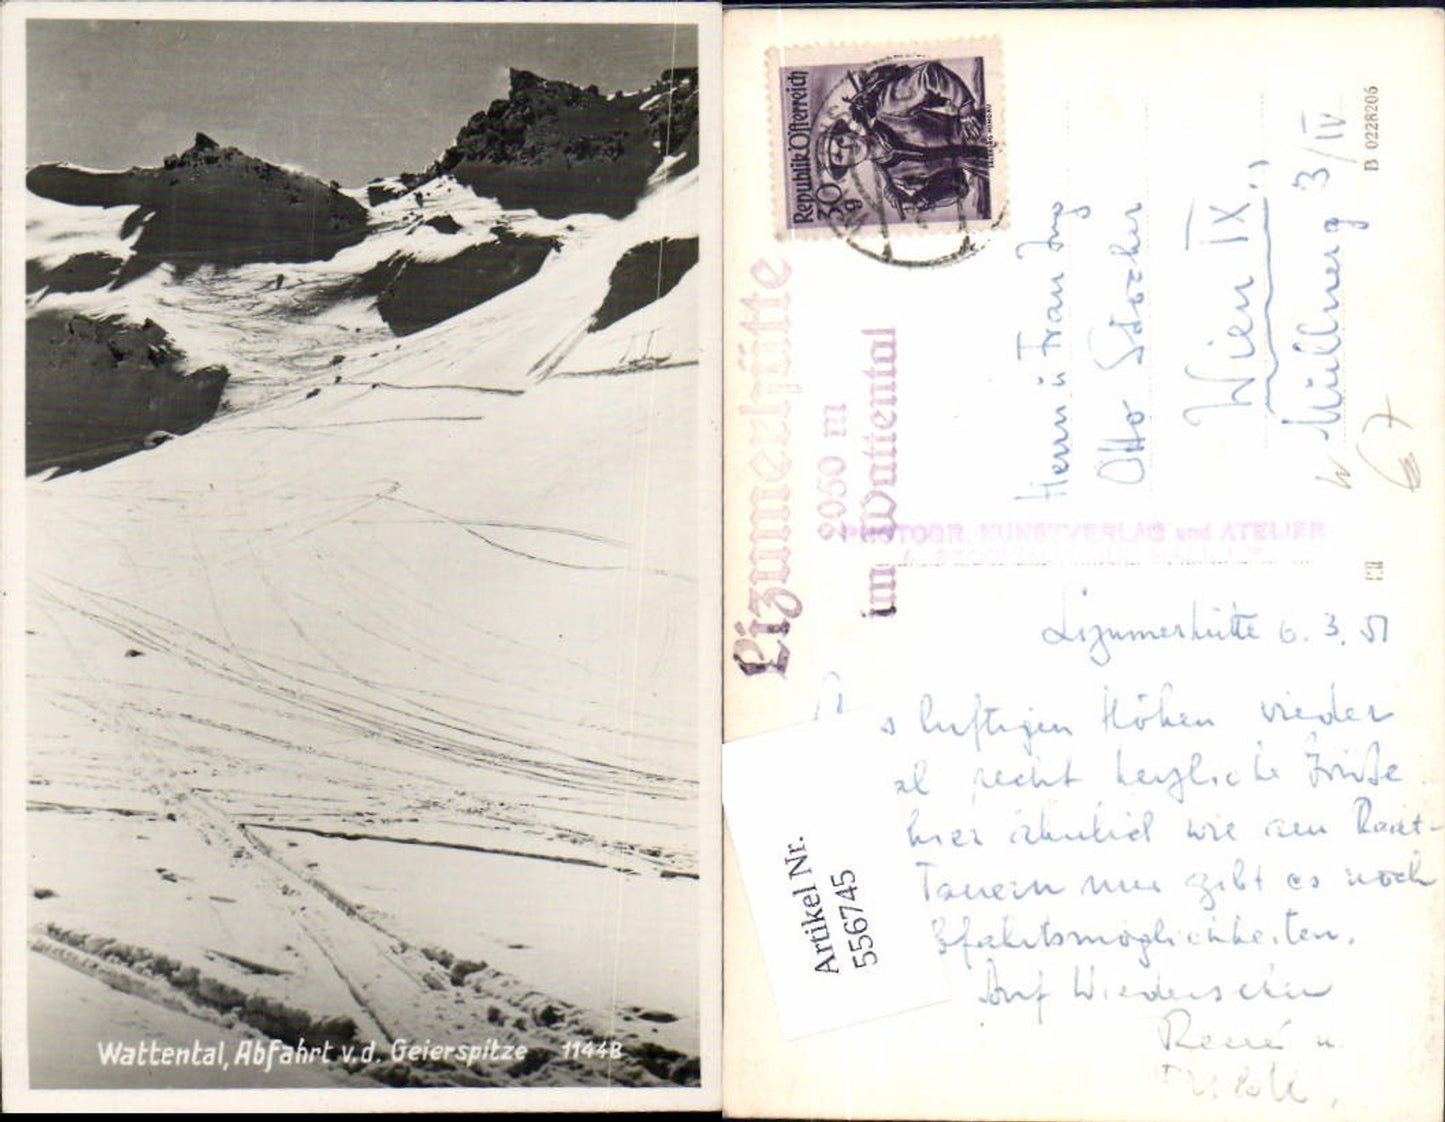 Wattental, Abfahrt v.d. Geierspitze 11448
Republik Österreich
30
g
Lizumerhütte
2050 m
im Wattental
Herrn u Frau Ing
Otto
Wien IX
3/IV
B 0228206
67
PHOTOGR. KUNSTVERLAG und ATELIER
Lizumerhütte 6. 3. 51
s luftigen Höhen wieder
al recht herzliche Grüße
hier ähnlich wie am Radt-
Tauern nur gibt es noch
bfahrtsmöglichkeiten.
Auf Wiedersehen
René u.
Artikel Nr.
556745